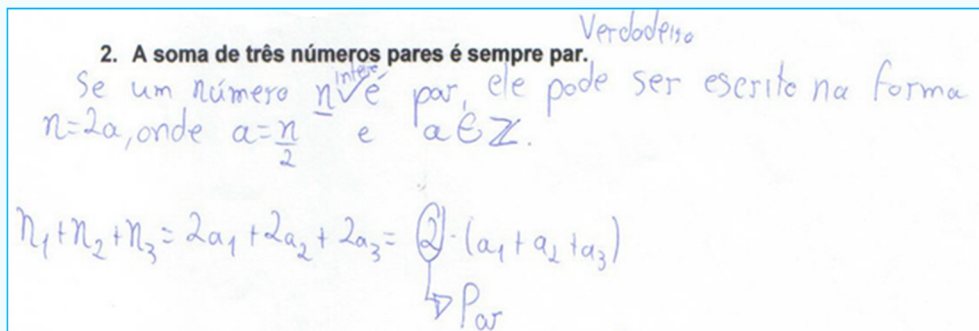 Verdadeiro
2. A soma de três números pares é sempre par.
Se um número n inteiro é par, ele pode ser escrito na forma
n=2a, onde a=n/2 e a∈Z.
n₁+n₂+n₃=2a₁+2a₂+2a₃=2·(a₁+a₂+a₃)
Par